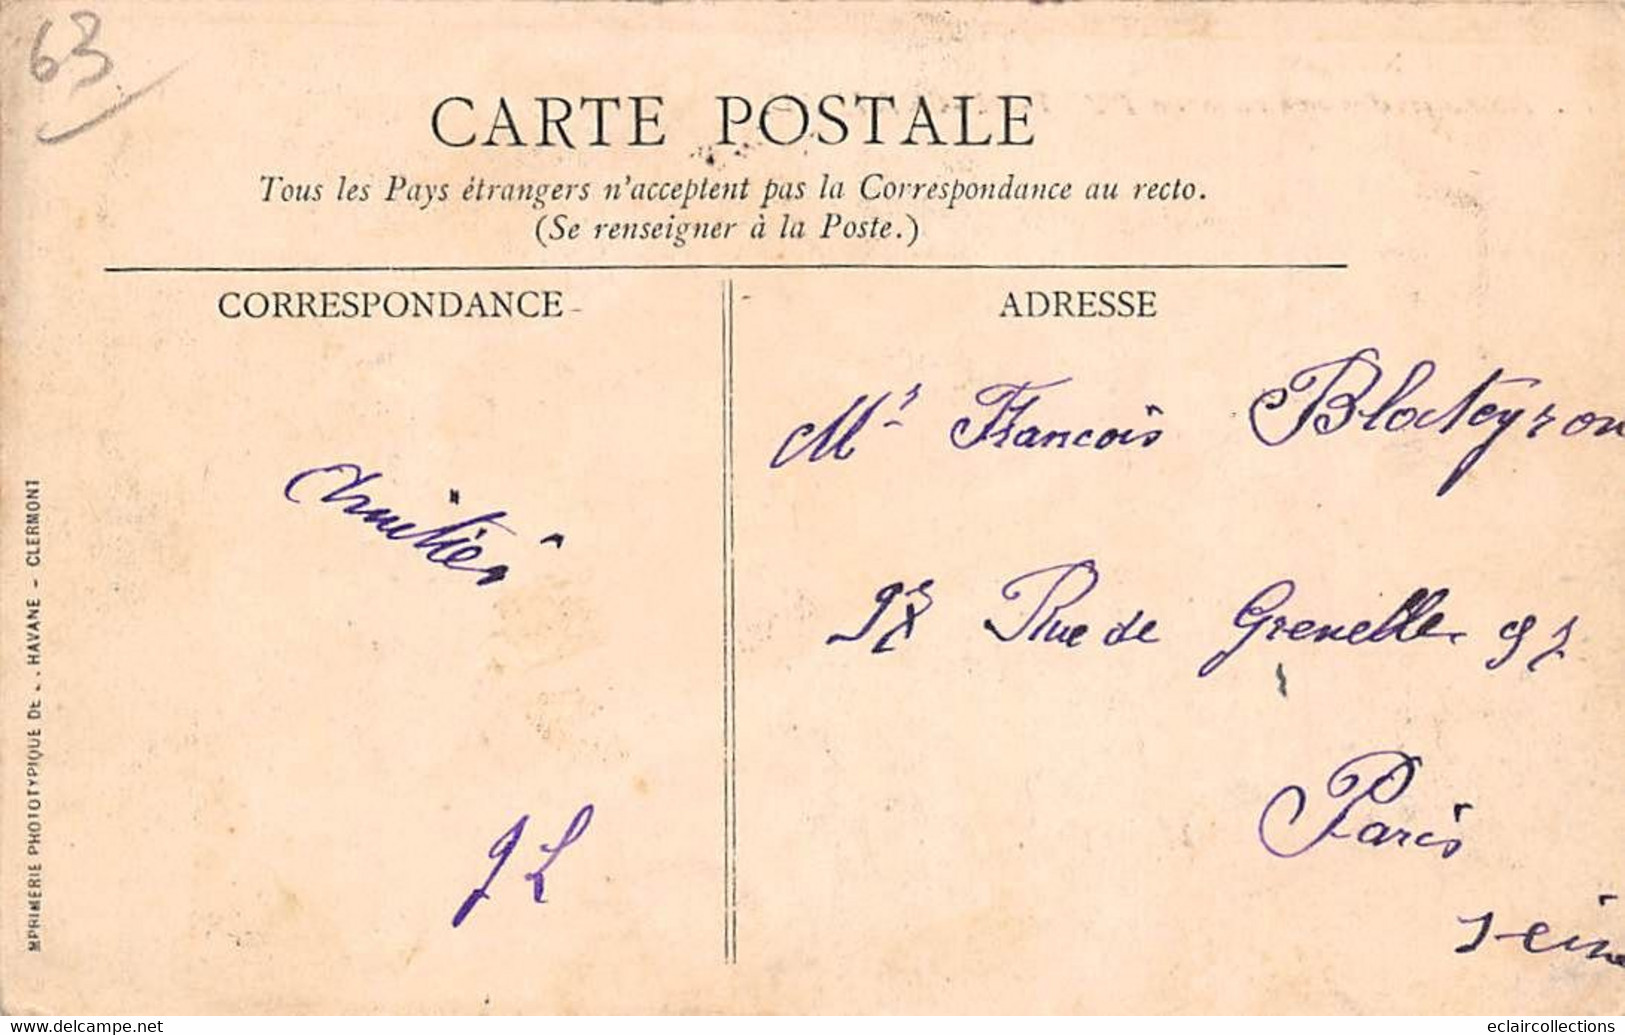 63
CARTE POSTALE
Tous les Pays étrangers n'acceptent pas la Correspondance au recto.
(Se renseigner à la Poste.)
CORRESPONDANCE
ADRESSE
Mr François Blateyron
Amitiés
97 Rue de Grenelle 97
Paris
JL
Seine
MPRIMERIE PHOTOTYPIQUE DE L. HAVANE - CLERMONT
www.delcampe.net
eclaircollections